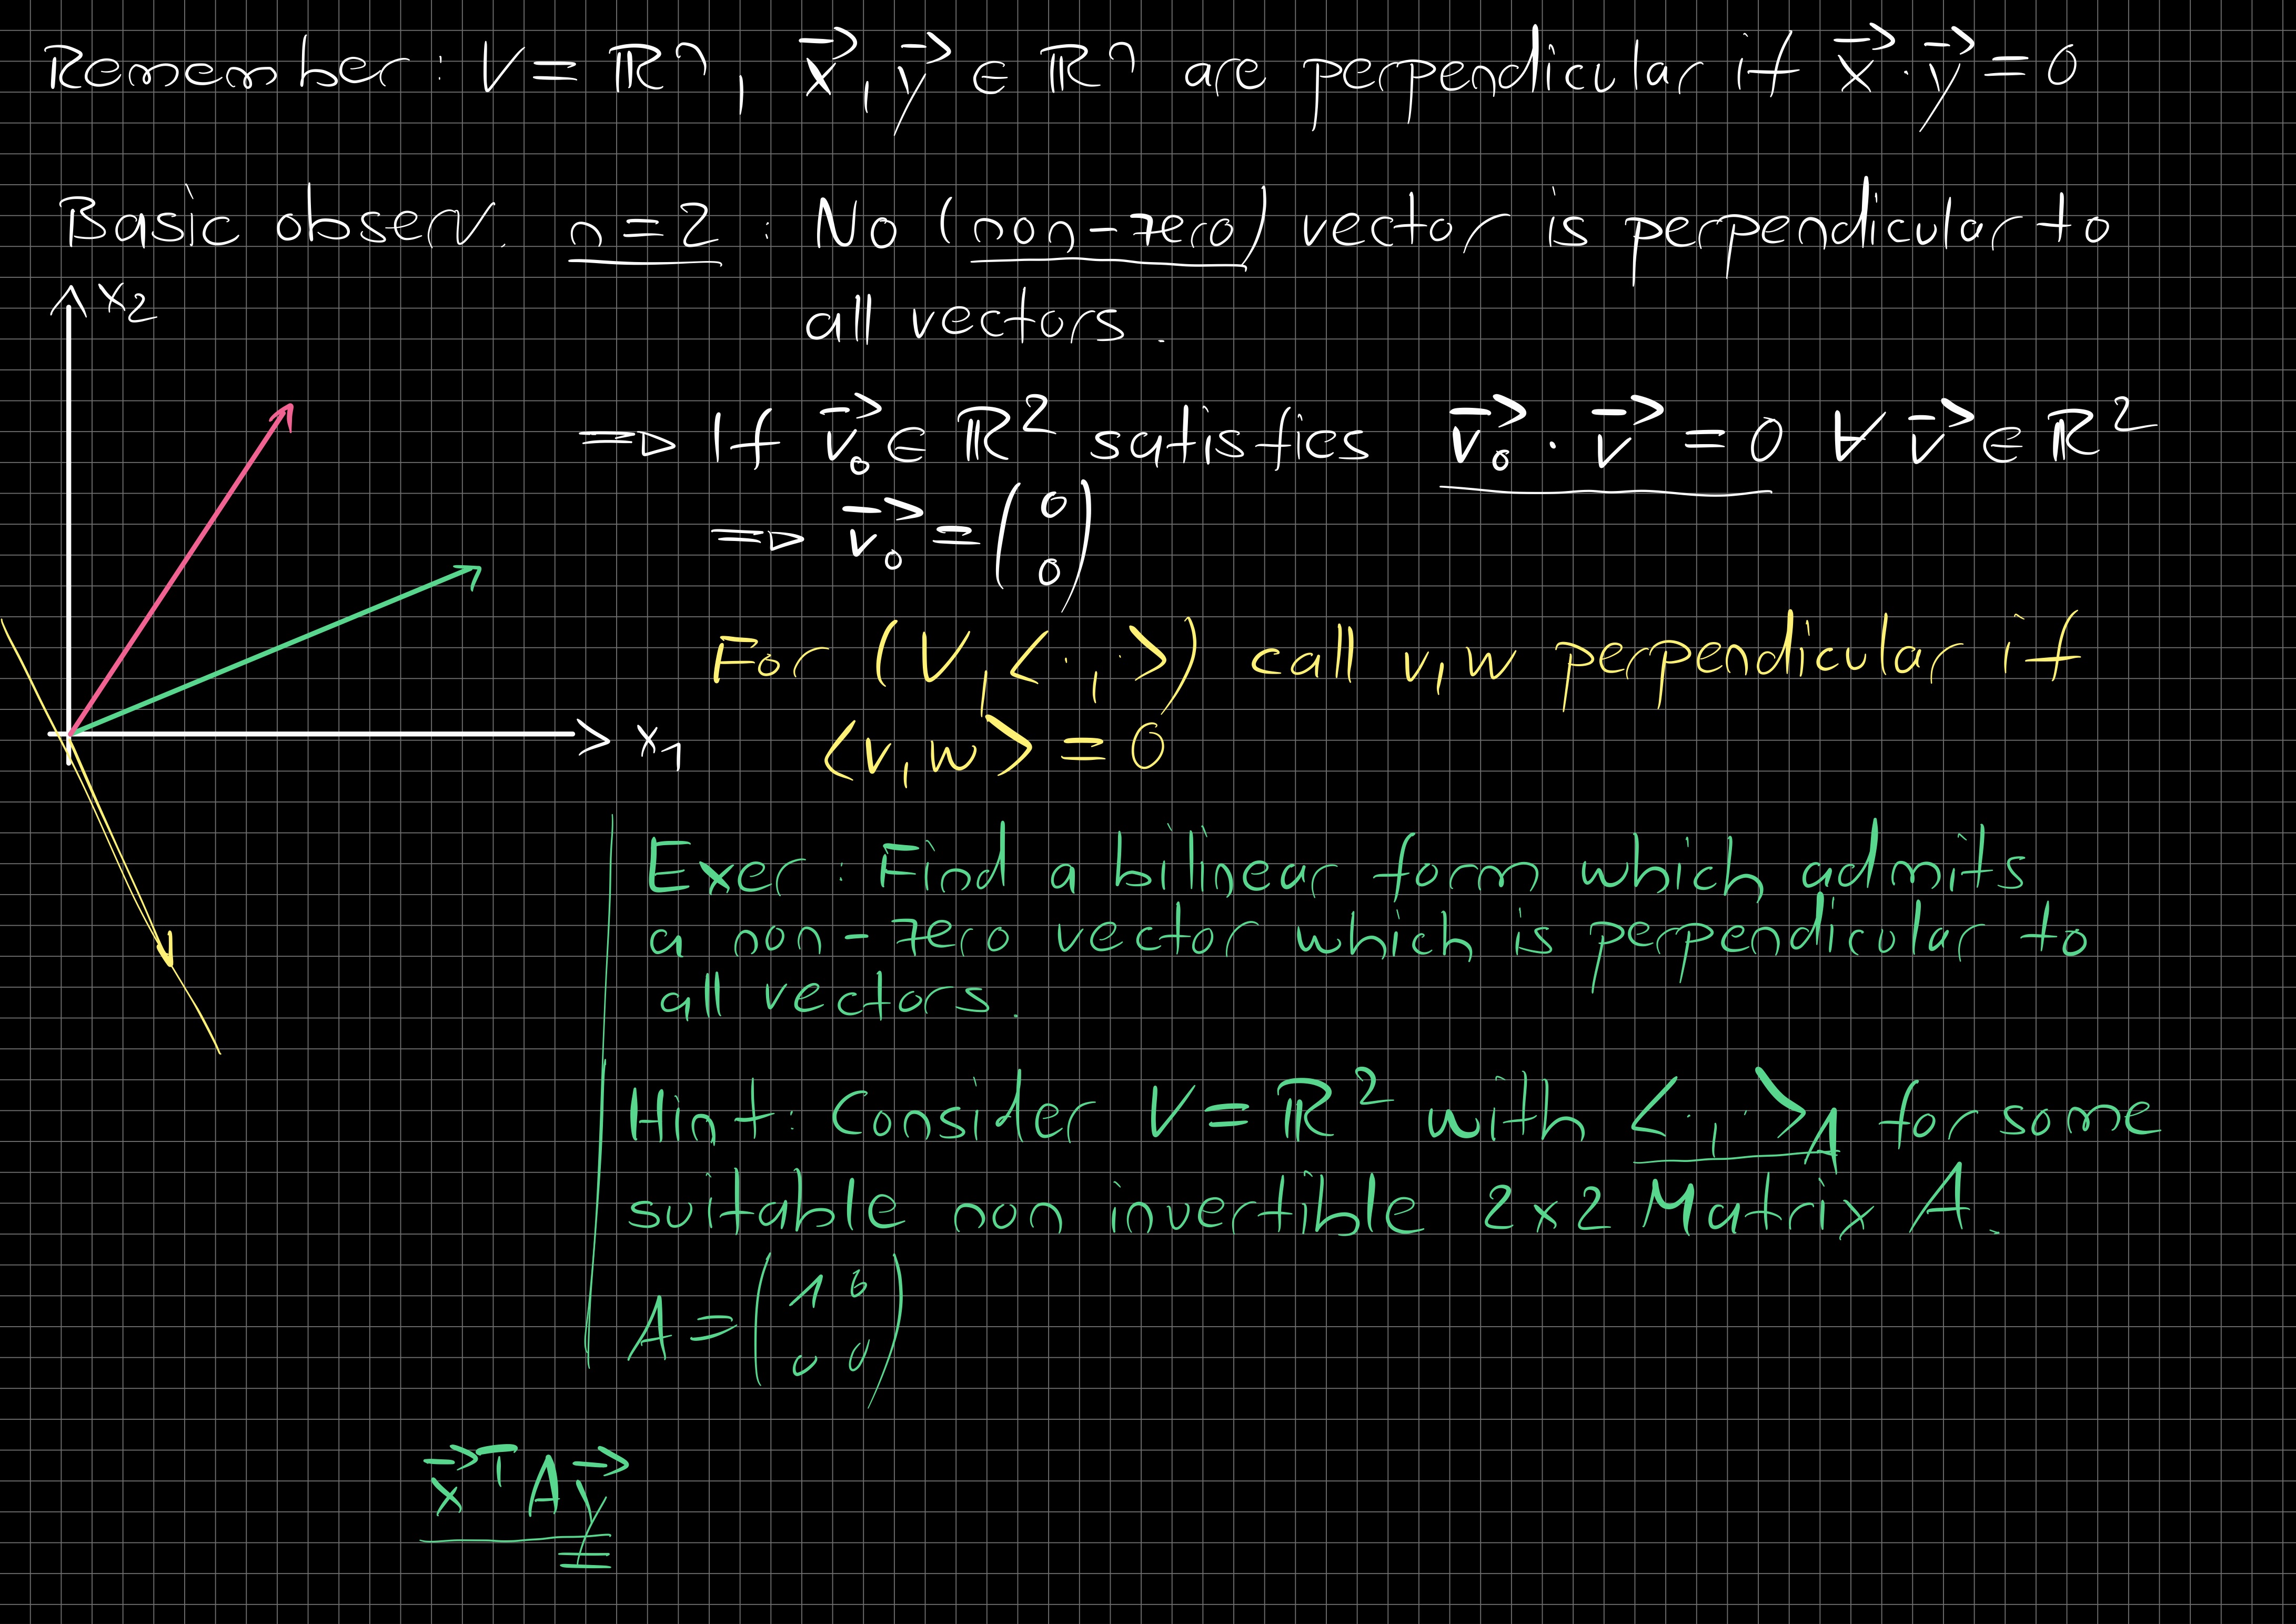 Remember: V = ℝⁿ, x⃗, y⃗ ∈ ℝⁿ are perpendicular if x⃗ · y⃗ = 0
Basic observ. n = 2 : No (non-zero) vector is perpendicular to
all vectors.
x₂
⇒ If v⃗₀ ∈ ℝ² satisfies v⃗₀ · v⃗ = 0 ∀ v⃗ ∈ ℝ²
⇒ v⃗₀ = (0
0)
For (V, <·,·>) call v, w perpendicular if
x₁
<v, w> = 0
Exer: Find a bilinear form which admits
a non-zero vector which is perpendicular to
all vectors.
Hint: Consider V = ℝ² with <·,·>_A for some
suitable non invertible 2x2 Matrix A.
A = (1 0
0 0)
x⃗ᵀ A y⃗